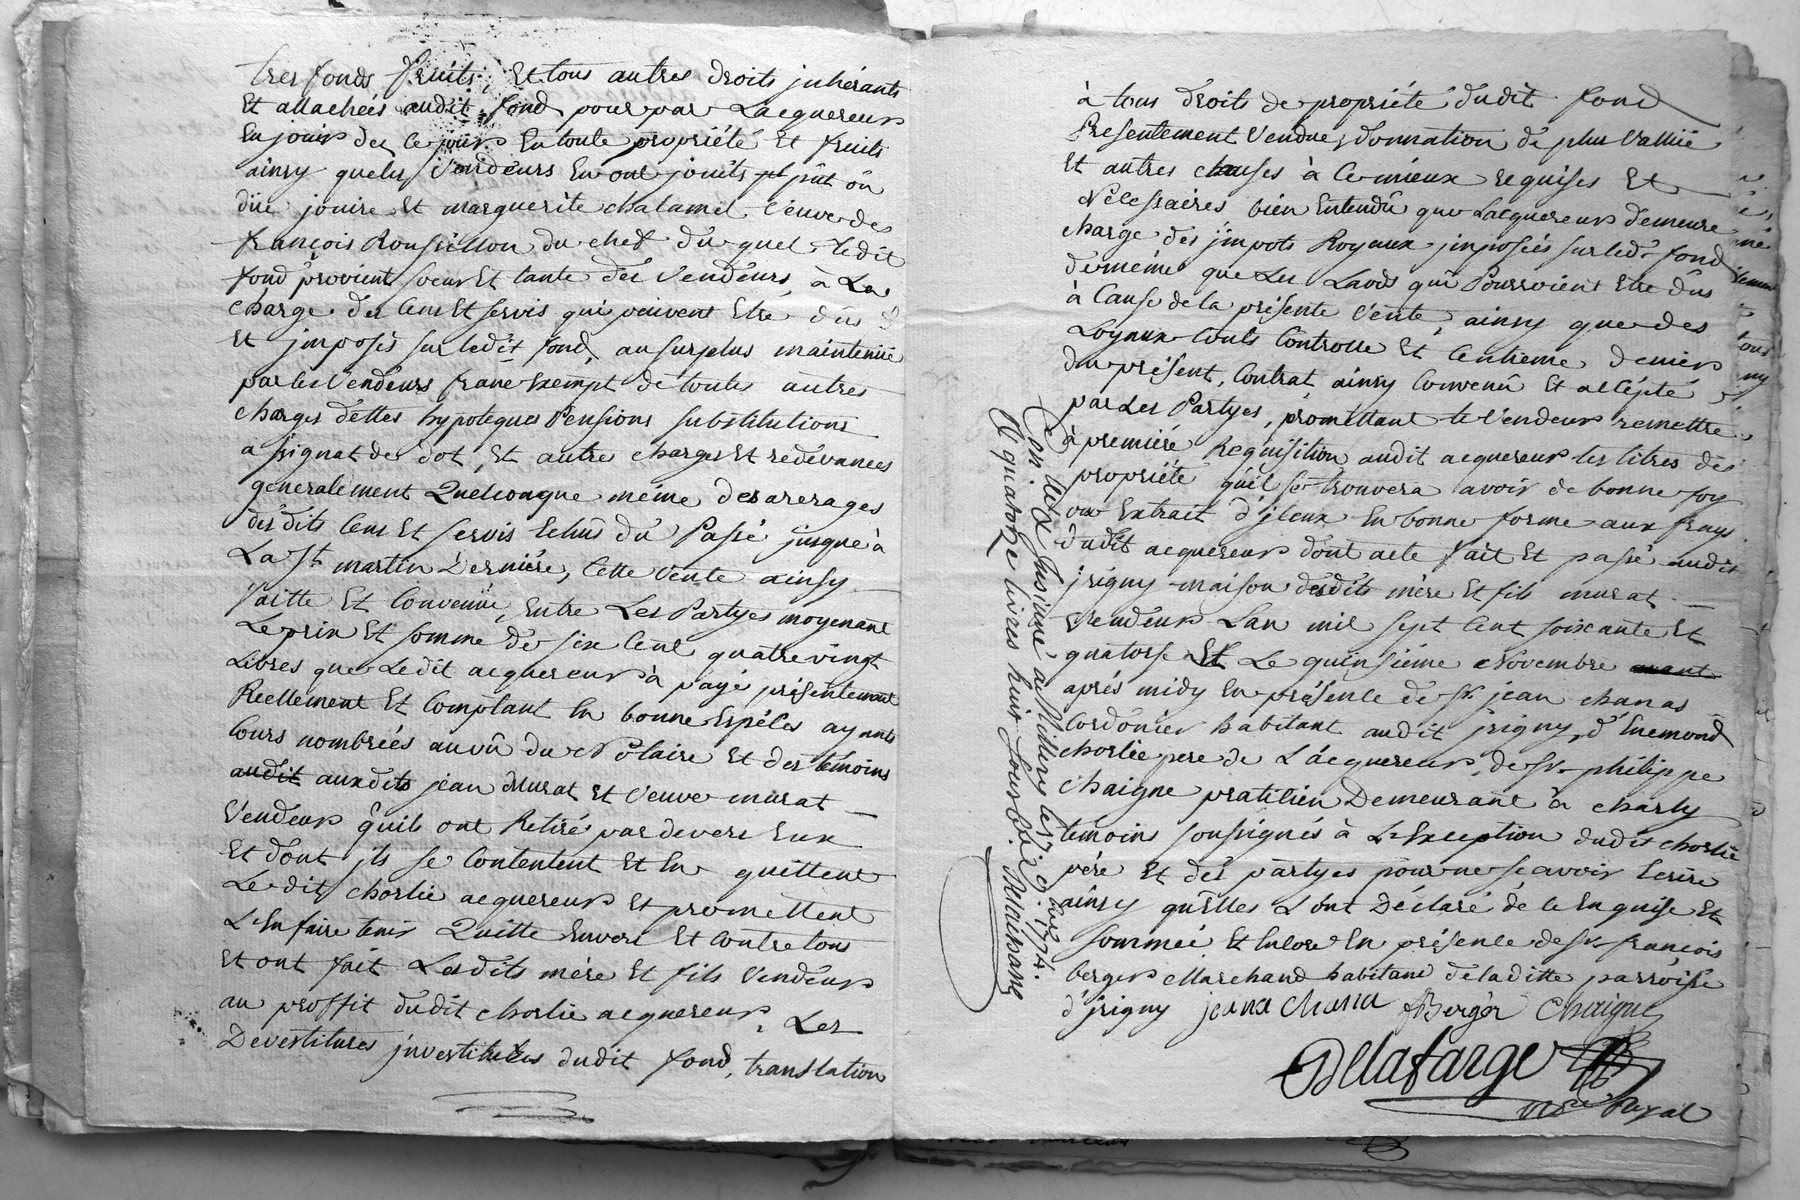 tres fonds, fruits, Et tous autres droits jnhérants
Et attachées audit fond pour par Lacquereur
En jouir des ce jour En toute propriété Et fruits
ainsy queles Vendeurs En ont jouit, pût ôu
dûe jouire Et marguerite chalamel Veuve de
françois Roussillon du chef du quel ledit
fond provient soeur Et tante des Vendeurs, à La
charge des Cens Et servis qui peuvent Etre dûs
Et jmposés sur ledit fond, au surplus maintenüe
par les Vendeurs franc Exempt de toutes autres
charges dettes hypoteques Pensions substitutions
assignat de dot, Et autre charges Et redevances
generalement Quelconque même des arerages
desdits Cens Et servis Echus du Passé jusque à
La St martin Derniére, Cette Vente ainsy
faitte Et Convenüe, Entre Les Partyes moyenant
Le prix Et somme de six Cent quatre vingt
Livres que Ledit acquereur à payé présentement
Reellement Et Comptant En bonne Espéces ayants
Cours nombrées au vû du Notaire Et des témoins
audit auxdits jean Murat Et Veuve murat
Vendeur quils ont Retiré par devers Eux
Et dont jls se Contentent Et En quittent
Le dit chorlie acquereur Et promettent
L'En faire tenir Quitte Envers Et Contre tous
Et ont fait Lesdits mère Et fils Vendeur
au proffit dudit chorlie acquereur, Les
Devestitures jnvestitures dudit fond, translation
à tous droits de propriété dudit fond
Presentement Vendue, donnation de plus Vallüe
Et autres clauses à Ce mieux requises Et
Nécessaires bien Entendû que Lacquereur demeure
charge des jmpots Royaux jmposées sur led. fond
de même que Les Laods qui Pourroient Etre dûs
à Cause de la présente Vente, ainsy que des
Loyaux Couts Controlle Et Centieme denier
du présent, Contrat ainsy Convenû Et accépté
par Les Partyes, promettant le Vendeur remettre
à premiére Requisition audit acquereur les titres de
propriété qu'il se trouvera avoir de bonne foy
ou Extrait d'jceux En bonne forme aux frays
dudit acquereur dont acte fait Et passé audit
jrigny maison desdits mère Et fils murat
Vendeur Lan mil sept Cent soixante Et
quatorse Et Le quinsiéme Novembre avant
aprés midy En présence de Sr jean chanas
Cordônier habitant audit jrigny, d'Enemond
chorlie pere de L'acquereur, de Sr philippe
chaigne praticien Demeurant à charly
temoins soussignés à L'Exception dudit chorlie
pére Et des partyes pour ne sçavoir Ecrire
ainsy qu'Elles L'ont Déclaré de ce Enquise Et
sommée Et Encore En présence de Sr françois
berger Marchand habitant de laditte parroisse
d'jrigny jeana Chana fBerger Chaigne
Delafarge
nore Royal
Con. Et Insinué à St Millery le 17. 9bre 1774.
R quatorze livres huit sous